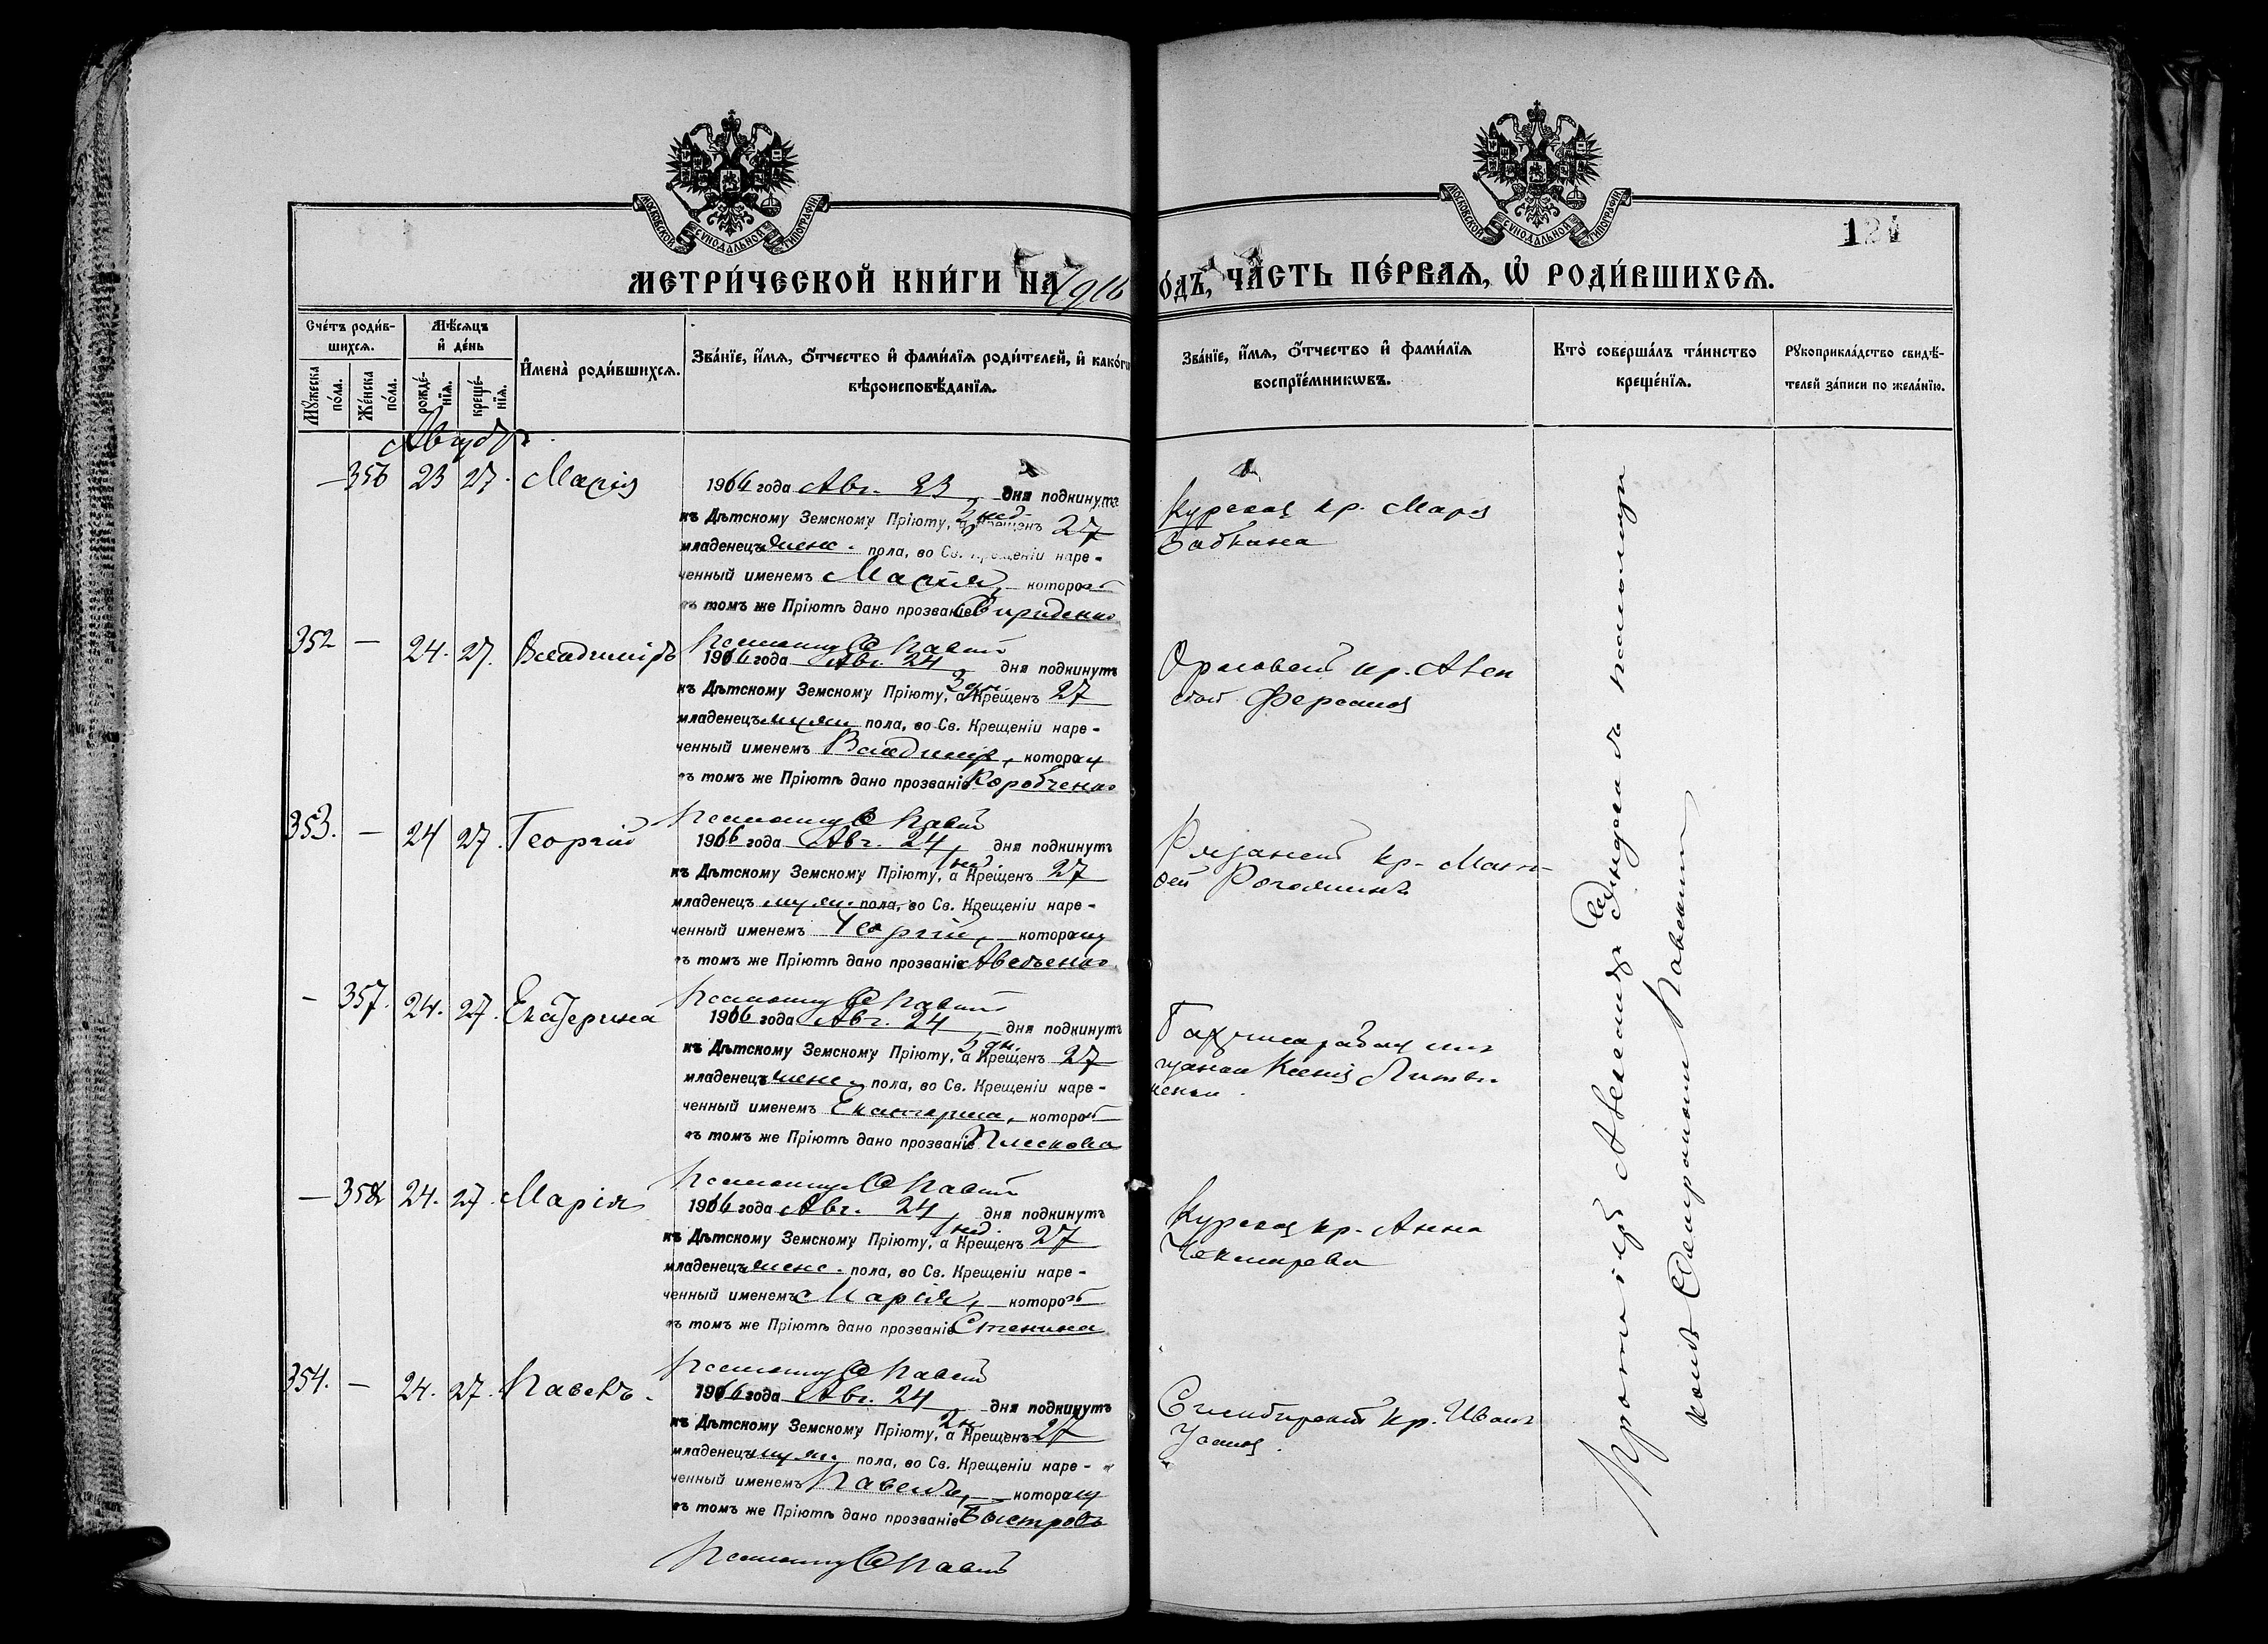 МОСКОВСКОЙ СѴНОДАЛЬНОЙ ТИПОГРАФІИ
МОСКОВСКОЙ СѴНОДАЛЬНОЙ ТИПОГРАФІИ
124
МЕТРИ́ЧЕСКОЙ КНИ́ГИ НА 1916
О́ДЪ, ЧА́СТЬ ПЕ́РВАѦ, Ѡ҆ РОДИ́ВШИХСѦ.
Сче́тъ роди́в-
шихсѧ.
Мꙋ́жеска по́ла.
Же́нска по́ла.
Мѣ́сѧцъ
и҆ де́нь
рожде́-
нїѧ.
креще́-
нїѧ.
И҆мена̀ роди́вшихсѧ.
Зва́нїе, и҆́мѧ, о҆́тчество и҆ фами́лїѧ роди́телей, и҆ како́гѡ
вѣроисповѣ́данїѧ.
Зва́нїе, и҆́мѧ, о҆́тчество и҆ фами́лїѧ
воспрїе́мникѡвъ.
Кто̀ соверша́лъ та́инство
креще́нїѧ.
Рꙋкоприкла́дство свидѣ́-
телей за́писи по жела́нїю.
Августъ
— 356 23 27. Марія
1916 года Авг. 23 дня подкинутъ
къ Дѣтскому Земскому Пріюту, 2 нед. а Крещенъ 27
младенецъ женс. пола, во Св. Крещеніи наре-
ченный именемъ Марія, которой
въ томъ же Пріютѣ дано прозваніе Свириденко
Курская кр. Марія
Бабкина
352 — 24. 27. Владиміръ
1916 года Авг. 24 дня подкинутъ
къ Дѣтскому Земскому Пріюту, 3 дн. а Крещенъ 27
младенецъ муж. пола, во Св. Крещеніи наре-
ченный именемъ Владиміръ, котором
въ томъ же Пріютѣ дано прозваніе Коробченко
Орловск кр.
353. — 24 27. Георгій
1916 года Авг. 24, дня подкинутъ
къ Дѣтскому Земскому Пріюту, 1 нед. а Крещенъ 27
младенецъ муж. пола, во Св. Крещеніи наре-
ченный именемъ Георгій, которому
въ томъ же Пріютѣ дано прозваніе Авдѣенко
Рязанск кр.
— 357. 24. 27. Екатерина
1916 года Авг. 24 дня подкинутъ
къ Дѣтскому Земскому Пріюту, дн. а Крещенъ 27
младенецъ женс. пола, во Св. Крещеніи наре-
ченный именемъ Екатерина, которой
въ томъ же Пріютѣ дано прозваніе Плескова
Ксенія Литви
ненко.
— 358 24. 27. Марія
1916 года Авг. 24, дня подкинутъ
къ Дѣтскому Земскому Пріюту, 1 нед. а Крещенъ 27
младенецъ женс. пола, во Св. Крещеніи наре-
ченный именемъ Марія, которой
въ томъ же Пріютѣ дано прозваніе Стенина
Курская кр. Анна
Чекмарева
354. — 24. 27. Павелъ
1916 года Авг. 24 дня подкинутъ
къ Дѣтскому Земскому Пріюту, 2 н. а Крещенъ 27
младенецъ муж. пола, во Св. Крещеніи наре-
ченный именемъ Павелъ, которому
въ томъ же Пріютѣ дано прозваніе Быстровъ
Симбирскій кр. Иванъ
Протоіерей Александръ